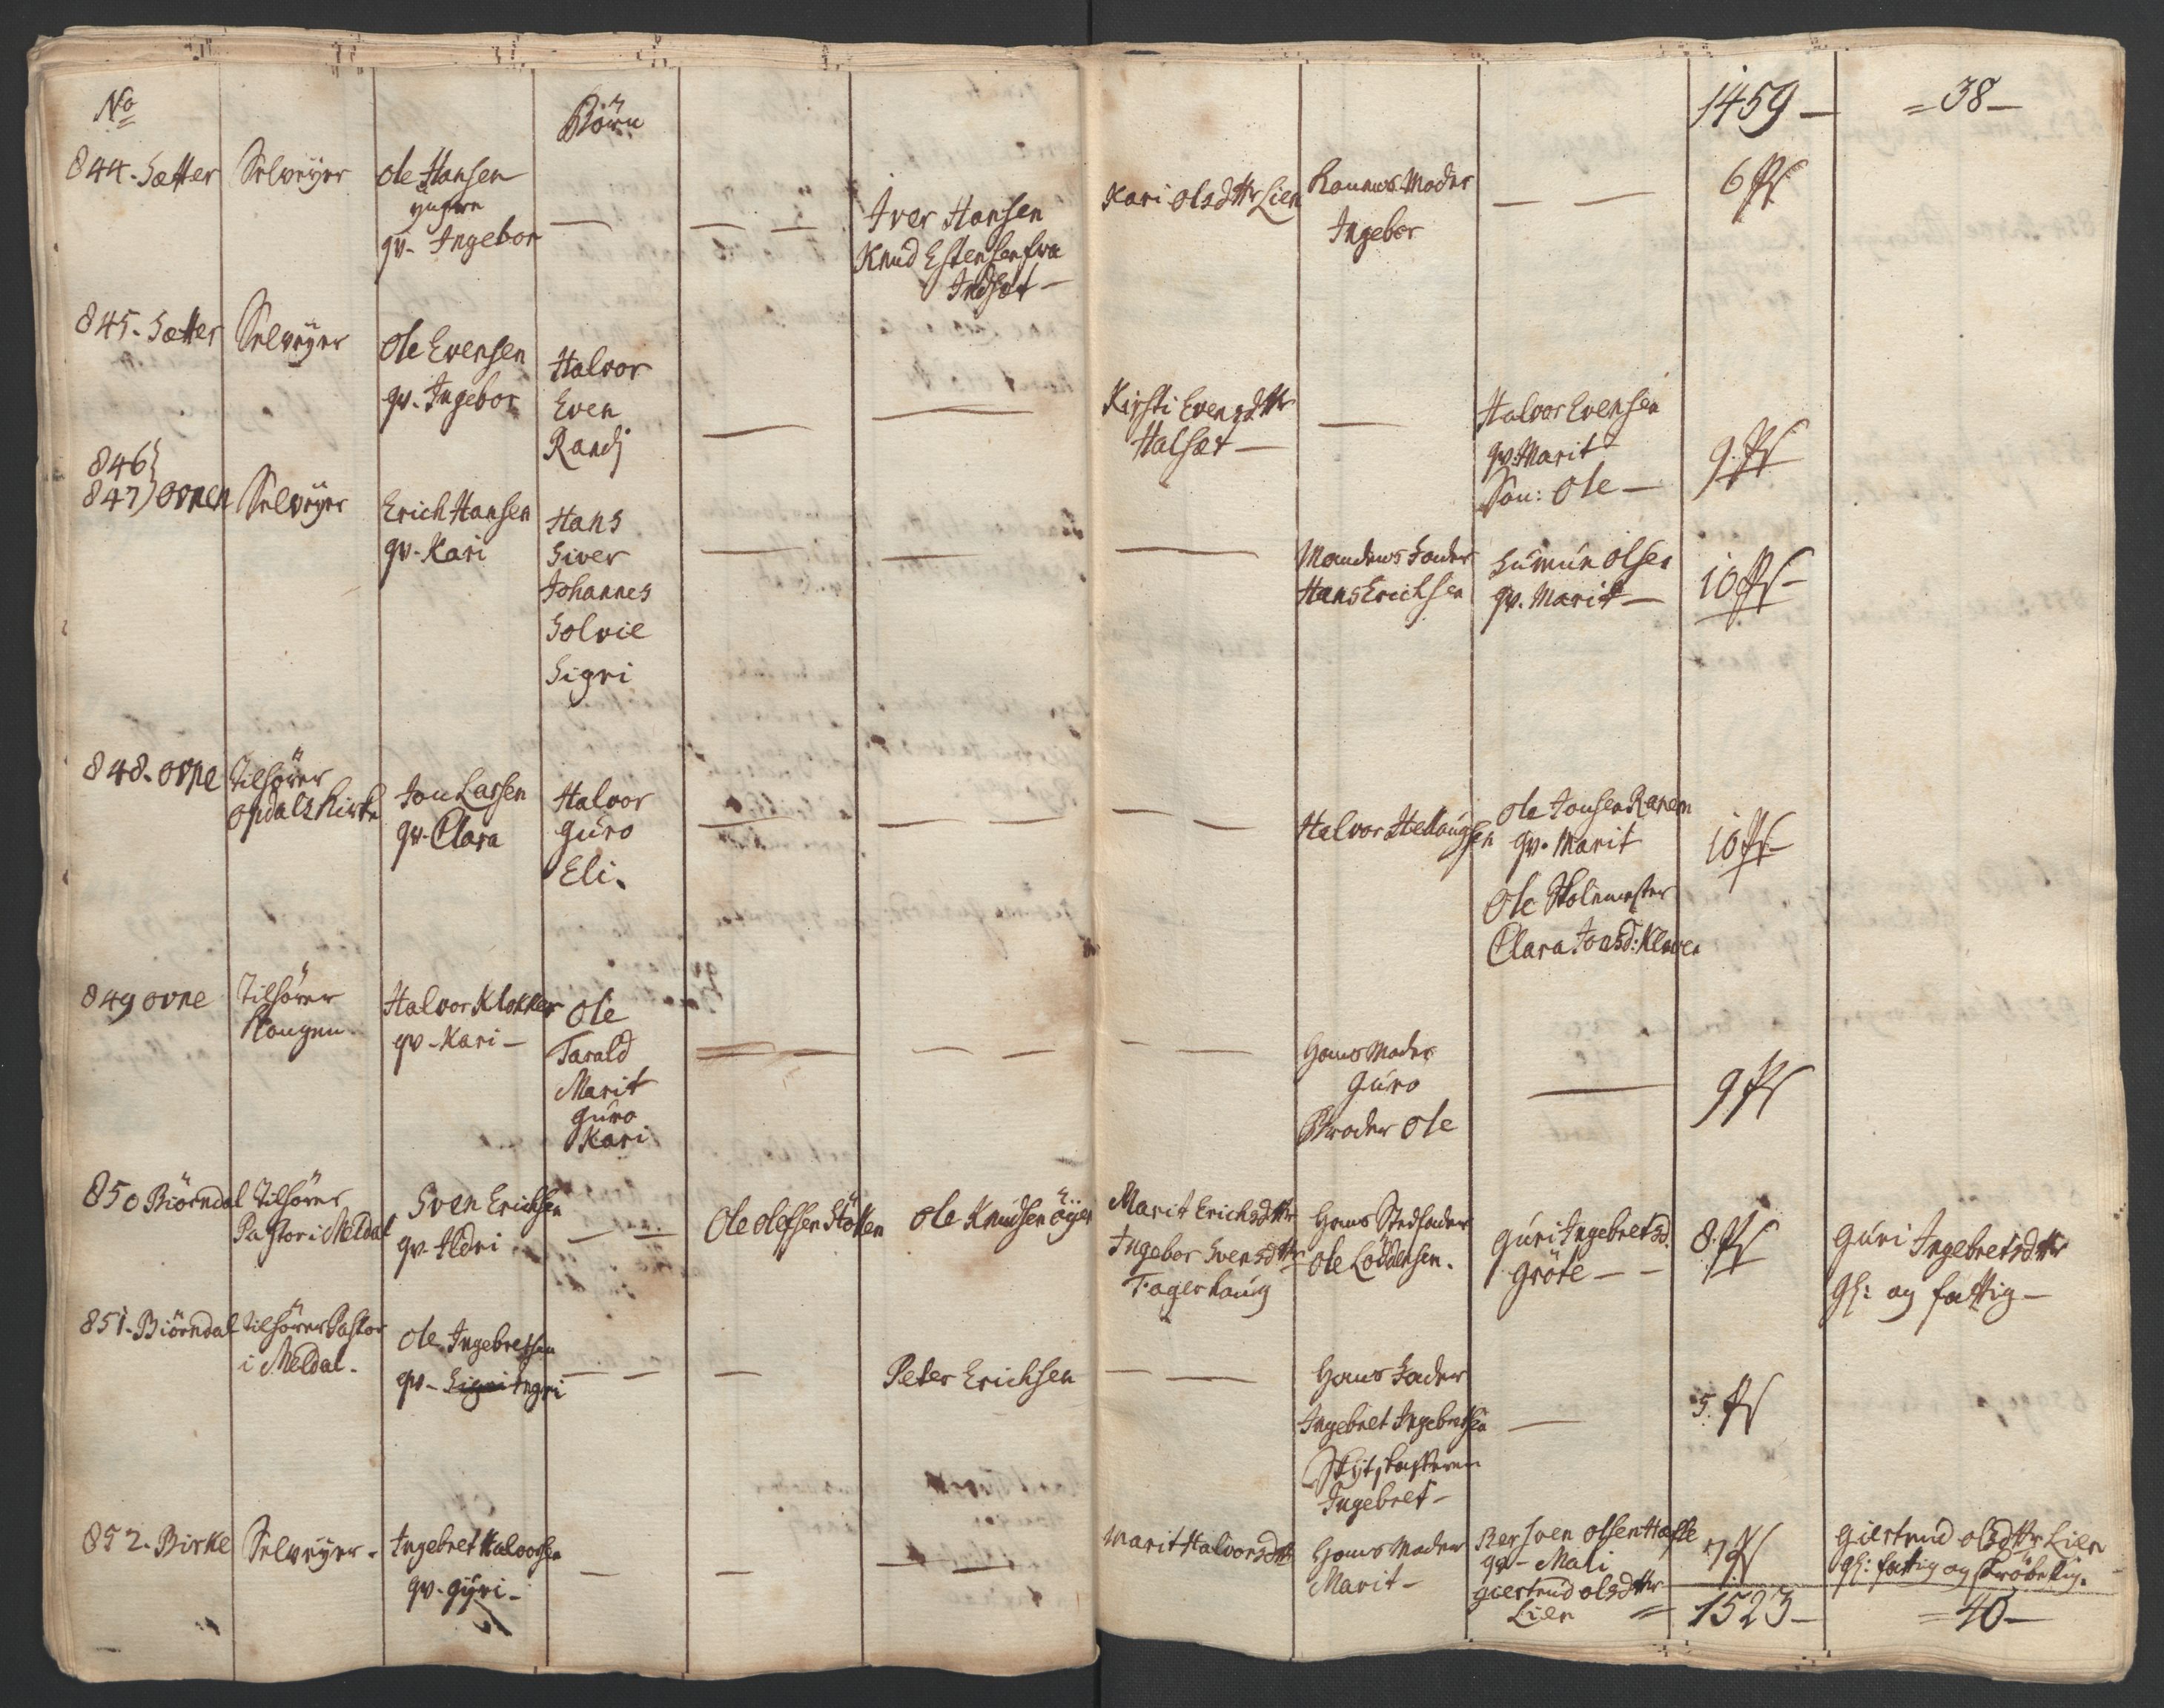 No
Börn
1459 —
= 38 —
844. Sætter
Selveÿer
Ole Hansen
yngere
qv. Ingebor
Iver Hansen
Knud Estensen fra
Indset —
Kari Olsdttr Lien
Konens Moder
Ingebor
6 Ps
845. Sætter
Selveÿer
Ole Evensen
qv. Ingebor
Halvor
Even
Randj
Kirsti Evensdttr
Halset —
Halvor Evensen
qv. Marit
Søn: Ole —
9. Ps
846
847) Ovnen
Selveÿer
Erich Hansen
qv. Kari
Hans
Siver
Johannes
Solvie
Sigri
Mandens Fader
Hans Erichsen
Gumun Olsen
qv. Marit —
10 Ps —
848. Ovne
Tilhörer
Opdals Kirke
Jon Larsen
qv. Clara
Halvor
Guro
Eli.
Halvor Hellaugsen
Ole Jonsen Ranem
qv. Marit
Ole Skolemester
Clara Jonsd: Kleven
10 Ps
849 Ovne
Tilhörer
Kongen
Halvor Klokker
qv - Kari —
Ole
Tarald
Marit
Guro
Kari
Hans Moder
Guro
Broder Ole
9 Ps
850 Biörndal
Tilhörer
Pastor i Meldal
Sven Erichsen
qv. Ildri
Ole Olesen Stölen
Ole Knudsen Öÿen
Marit Erichsdttr
Ingebor Svensdttr
Fagerhaug
Hans Stedfader
Ole Loddensen.
Guri Ingebretsd.
Gröte — —
8. Ps
Guri Ingebretsdttr
gl: og fattig —
851. Biörndal
Tilhörer Pastor
i Meldal.
Ole Ingebretsen
qv - Sigri Ingri
Peter Erichsen
Hans Fader
Ingebret Ingebretsen
Skydskafferen
Ingebret —
5. Ps
852. Birke
Selveÿer.
Ingebret Halvorsen
qv. Gÿri —
Marit Halvorsdttr
Hans Moder
Marit —
Bersven Olsen Hafle
qv - Mali
Giertrud Olsdttr
Lien
7 Ps
= 1523 —
Giertrud Olsdttr Lien
gl: fattig og skröbelig.
= 40 —